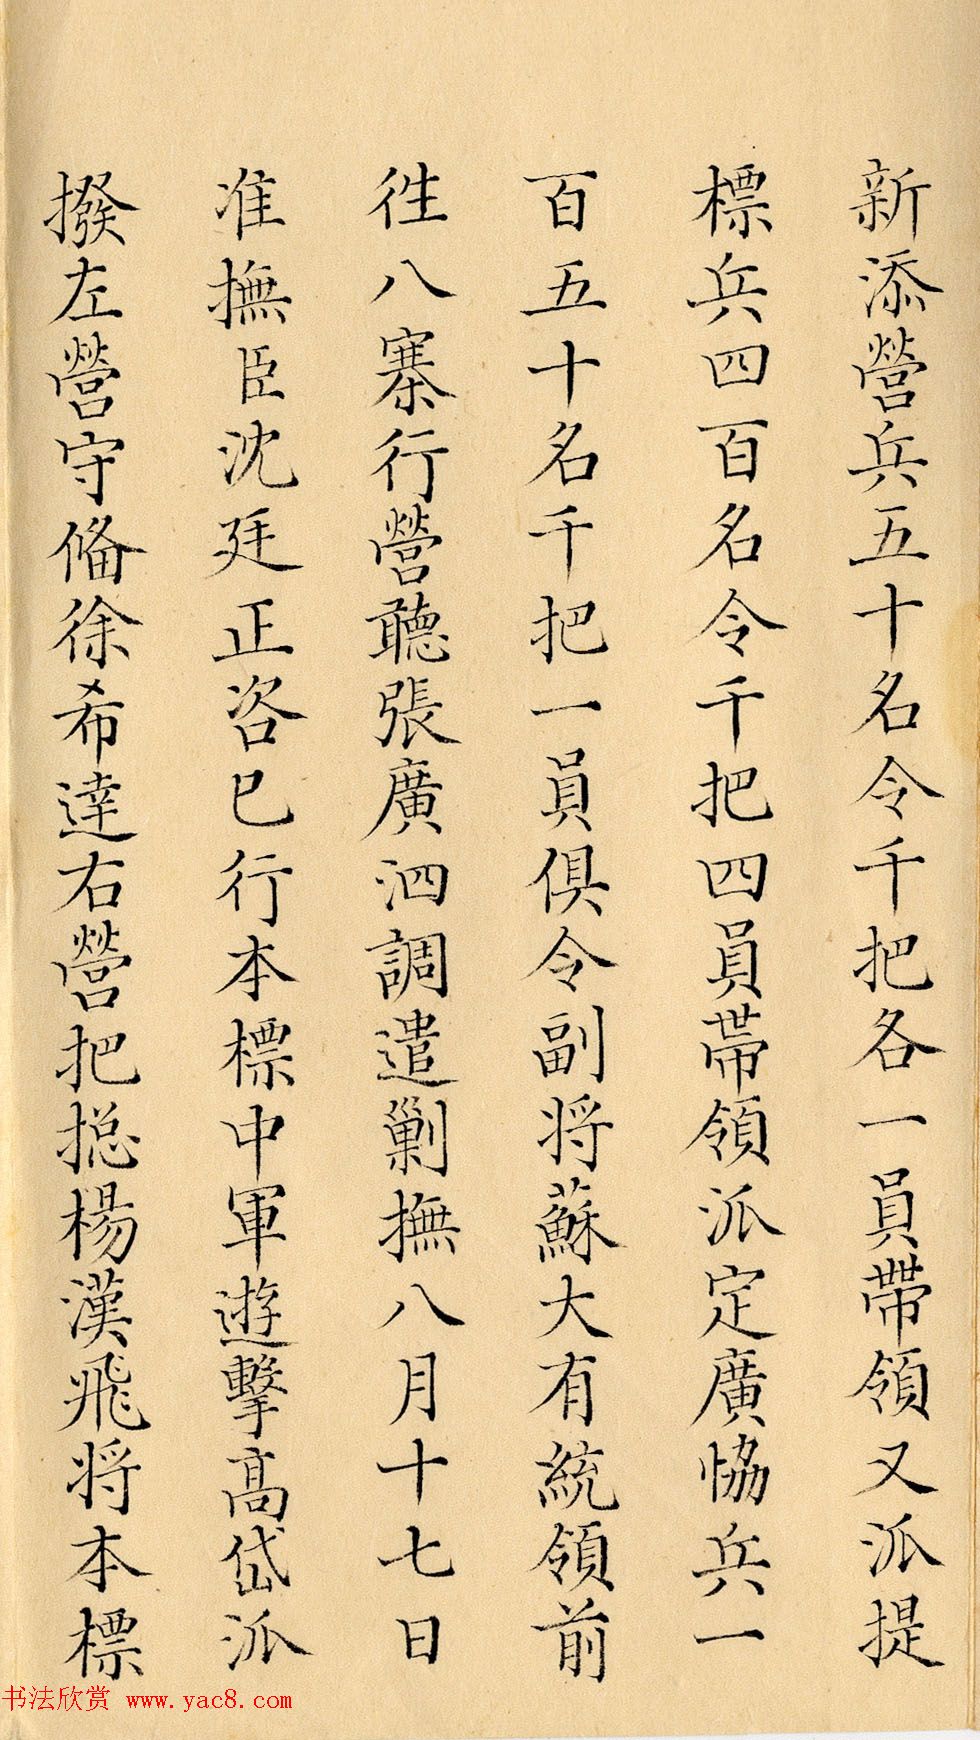 新添營兵五十名令千把各一員帶領又派提
標兵四百名令千把四員帶領派定廣協兵一
百五十名千把一員俱令副將蘇大有統領前
徃八寨行營聽張廣泗調遣剿撫八月十七日
准撫臣沈廷正咨已行本標中軍遊擊高岱派
撥左營守俻徐希達右營把捴楊漢飛將本標
书法欣赏 www.yac8.com